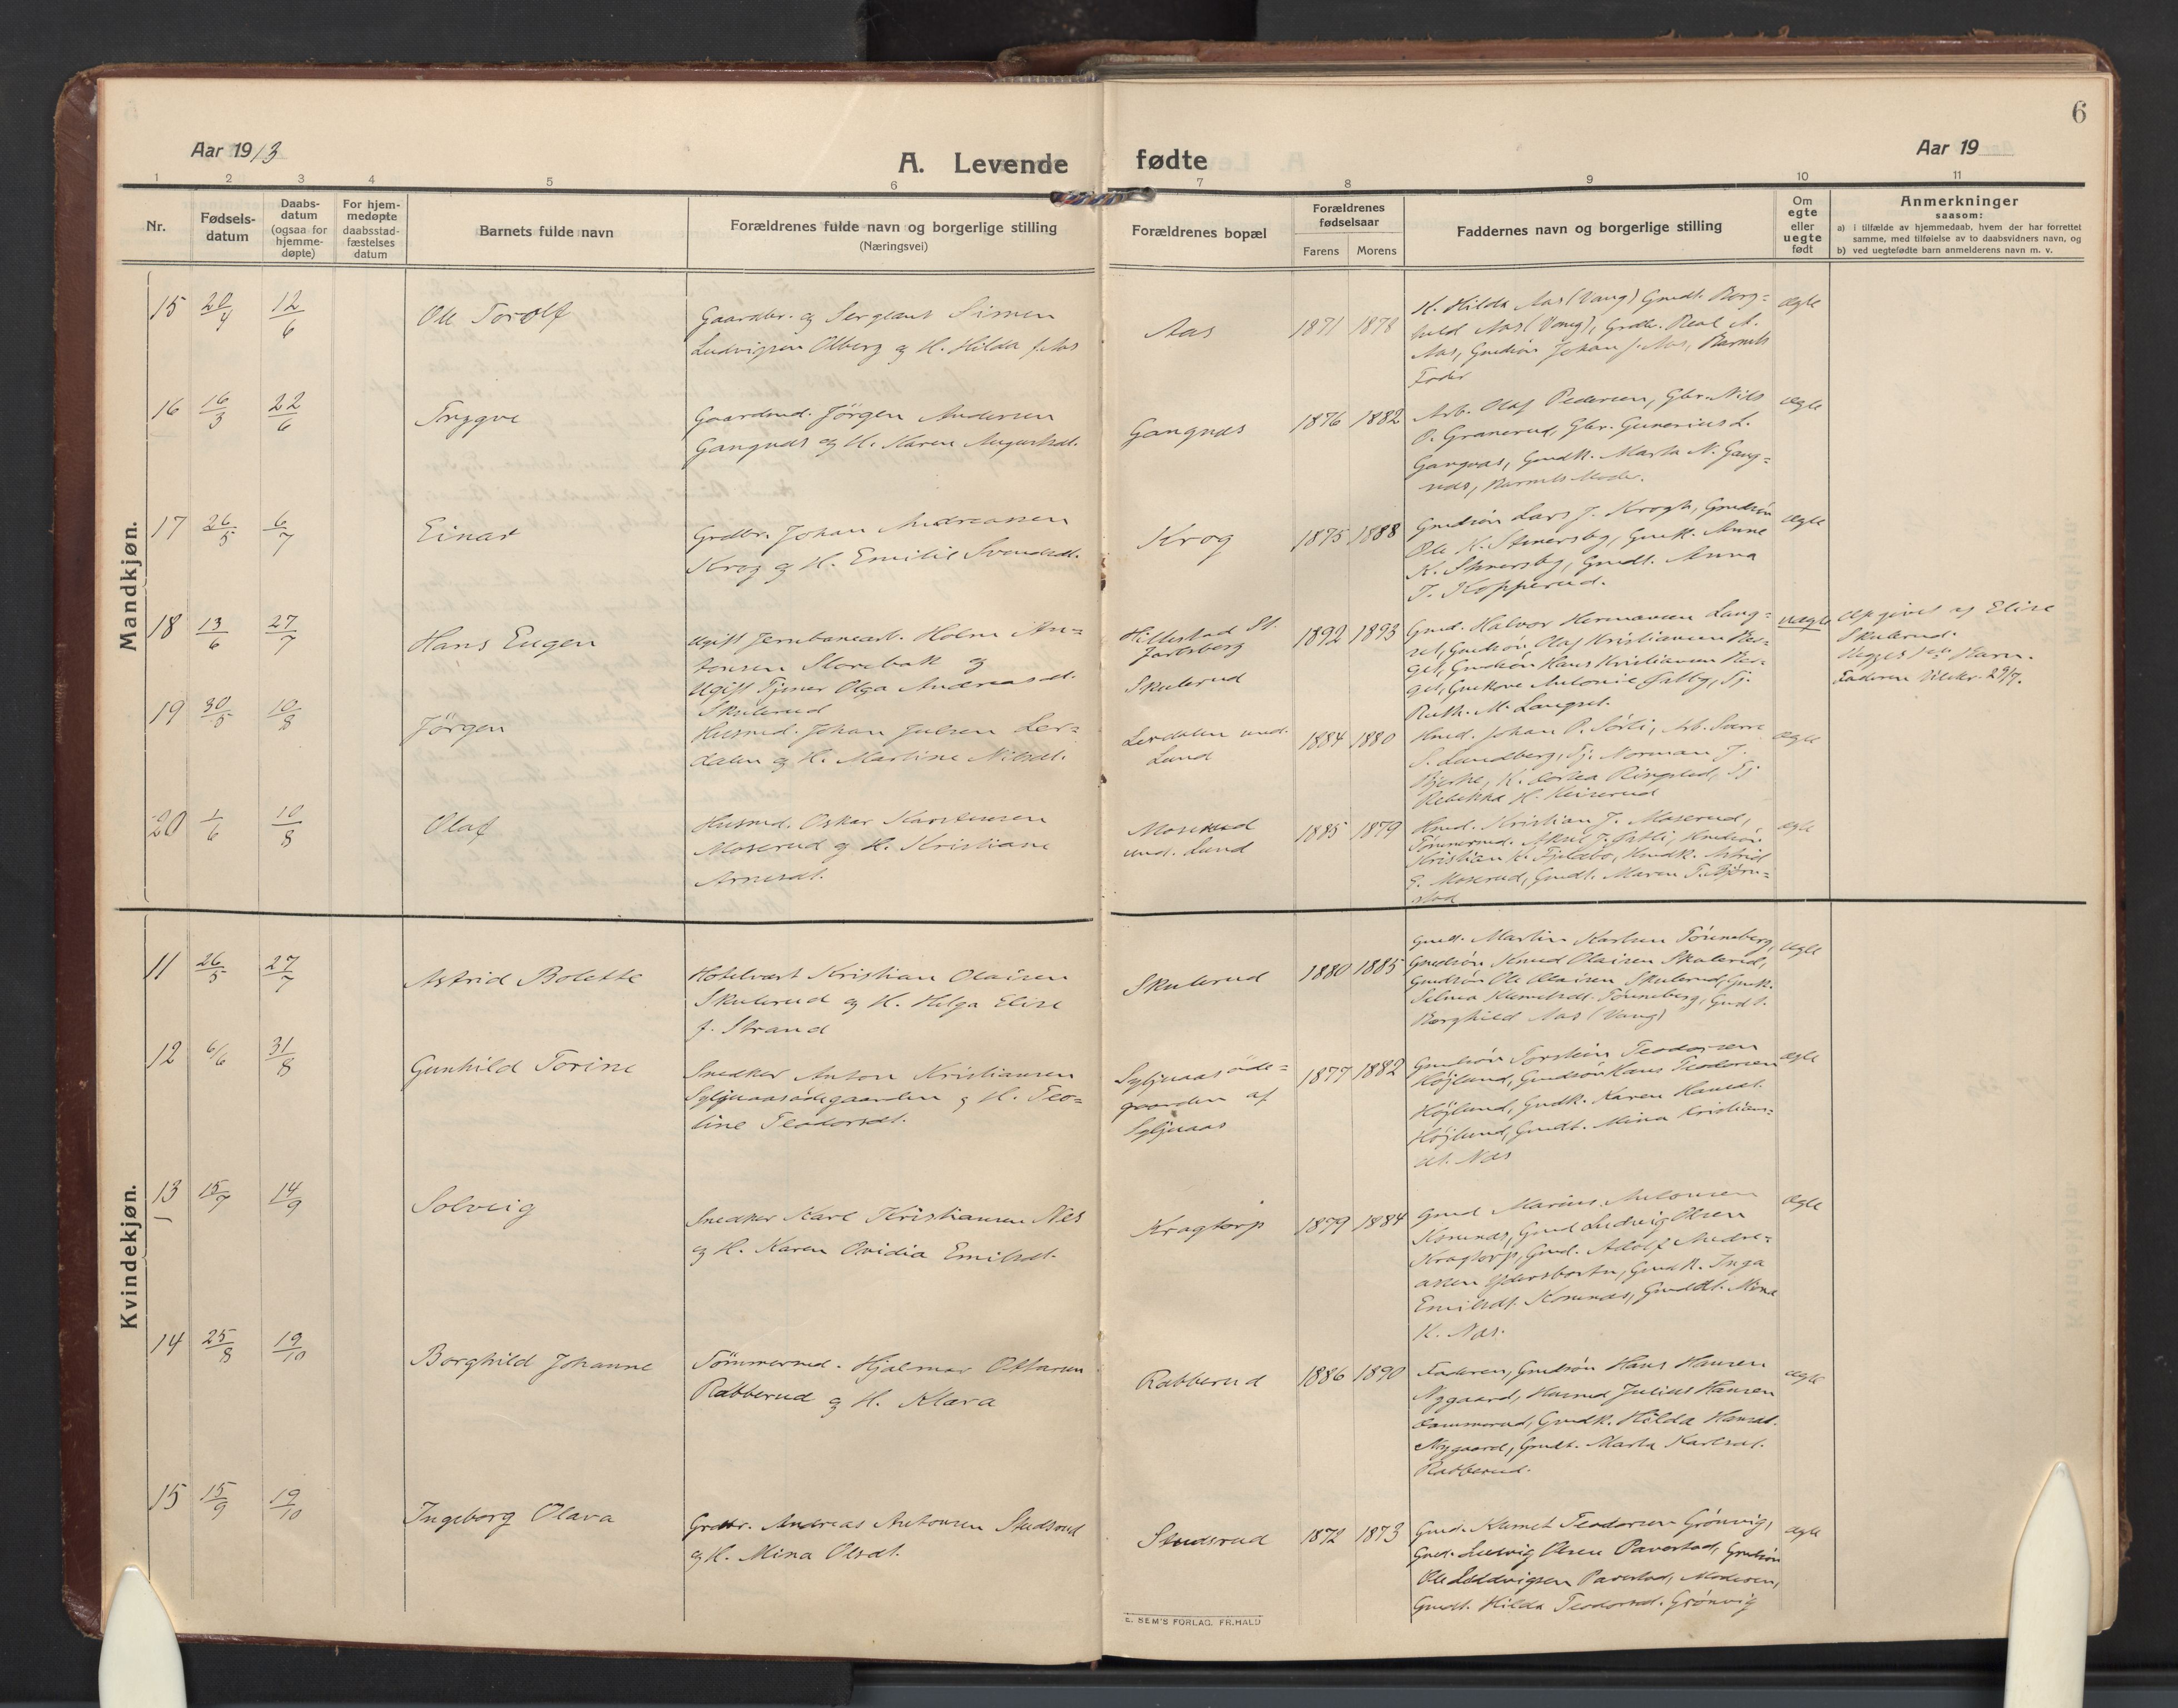 6
Aar 1913
A. Levende fødte
Aar 19
1 2 3 4 5 6 7 8 9 10 11
Nr.
Fødsels-
datum
Daabs-
datum
(ogsaa for
hjemme-
døpte)
For hjem-
medøpte
daabsstad-
fæstelses
datum
Barnets fulde navn
Forældrenes fulde navn og borgerlige stilling
(Næringsvei)
Forældrenes bopæl
Forældrenes
fødselsaar
Farens Morens
Faddernes navn og borgerlige stilling
Om
egte
eller
uegte
født
Anmerkninger
saasom:
a) i tilfælde av hjemmedaab, hvem der har forrettet
samme, med tilføielse av to daabsvidners navn, og
b) ved uegtefødte barn anmelderens navn m. v.
Mandkjøn.
15 20/4 12/6 Ole Torolf
Gaardbr. og Sergeant Simen
Ludvigsen Olberg og H. Hilda f. Aas
Aas 1871 1878
H. Hilda Aas (Vang) Gmdt. Borg-
hild Aas (Vang), Grdbr.
Aas, Gmdsön Johan J. Aas, Barnets
Fader
ægte
16 16/3 22/6 Trygve
Gaardmd. Jörgen Andersen
Gangnæs og H. Karen Augustsdt.
Gangnæs 1876 1882
Arb. Olaf Pedersen, Gbr. Nils
O. Granerud, Gbr. Gunerius L.
Gangnæs, Gmdk. Marta N. Gang-
næs, Barnets Moder.
ægte
17 26/5 6/7 Einar
Grdbr. Johan Andreassen
Krog og H. Emilie Svendsdt.
Krog 1875 1888
Gmdsön Lars J. Krogh, Gmdsön
Ole K. Stenersby, Gmdk. Anne
K. Stenersby, Gmdt. Anna
T. Kopperud.
ægte
18 13/6 27/7 Hans Eugen
Ugift Jernbanearb. Holm An-
tonsen Storebak og
Ugift Tjener Olga Andreasdt.
Skulerud
Hillestad St.
Jarlsberg
Skulerud
1892 1893
Gmd. Halvor Hermansen Lang-
set, Gmdsön Olaf Kristiansen Ber-
get, Gmdsön Hans Kristiansen Ber-
get, Gmdkone Antonie Tatby, Tj.
Ruth. M. Langset.
uægte
Opgivet af Elise
Skulerud.
Begges 1ste Barn.
Faderen 29/7.
19 30/5 10/8 Jörgen
Husmd. Johan Julsen Ler-
dalen og H. Martine Nilsdt.
Lerdalen und.
Lund
1884 1880
Hmd. Johan P. Sörli, Arb. Sverre
S. Lundberg, Tj. Norman J.
Bjerke, H. Dortea Ringstad, Tj
Rebekka H. Keiserud
ægte
20 1/6 10/8 Olaf
Husmd. Oskar Karstensen
Moserud og H. Kristiane
Arnesdt.
Moserud
und. Lund
1885 1879
Hmd. Kristian J. Moserud,
Tömmermd. J. Hmdsön
Kristian K. Fjeldbo, Hmdk. Astrid
G. Moserud, Gmdt. Maren T. Björn-
stad
ægte
Kvindekjøn.
11 26/5 27/7 Astrid Bolette
Hotelvært Kristian Olaisen
Skulerud og H. Helga Elise
f. Strand
Skulerud 1880 1885
Gmd. Martin Karlsen Tönneberg,
Gmdsön Knud Olaisen Skulerud,
Gmdsön Ole Olaisen Skulerud, Gmdk.
Selma Tönneberg, Gmdt.
Borghild Aas (Vang)
ægte
12 6/6 31/8 Gunhild Torine
Snedker Anton Kristiansen
Syljuaasödegaarden og H. Teo-
line Teodorsdt.
Syljuaasöde-
gaarden af
Syljuaas
1877 1882
Gmdsön Torstein Teodorsen
Höjlund, Gmdsön Hans Teodorsen
Höjlund, Gmdk. Karen Hansdt.
Höjlund, Gmdt. Mina Kristians-
dt. Næs
ægte
13 15/7 14/9 Solveig
Snedker Karl Kristiansen Næs
og H. Karen Ovidia Emilsdt.
Kragtorp 1879 1884
Gmd Marius Antonsen
Kornæs, Gmd Ludvig Olsen
Kragtorp, Gmd. Adolf Andre-
asen Ydersbotn, Gmdk. Inga
Emilsdt. Kornæs, Gmddt. Mina
K. Næs.
ægte
14 25/8 19/10 Borghild Johanne
Tömmermd. Hjalmar Ottarsen
Rabberud og H. Klara
Rabberud 1886 1890
Faderen, Gmdsön Hans Hansen
Nygaard, Husmd Julius Hansen
Dammerud, Gmdk. Hilda Hansdt.
Nygaard, Gmdt. Marta Karlsdt.
Rabberud.
ægte
15 15/9 19/10 Ingeborg Olava
Grdbr. Andreas Antonsen Studsrud
og H. Mina Olsdt.
Studsrud 1872 1873
Gmd. Teodorsen Grönvig,
Gmd. Ludvig Olsen Paverstad, Gmdsön
Ole Ludvigsen Paverstad, Moderen,
Gmdt. Hilda Teodorsdt. Grönvig
ægte
E. SEM'S FORLAG. FR.HALD